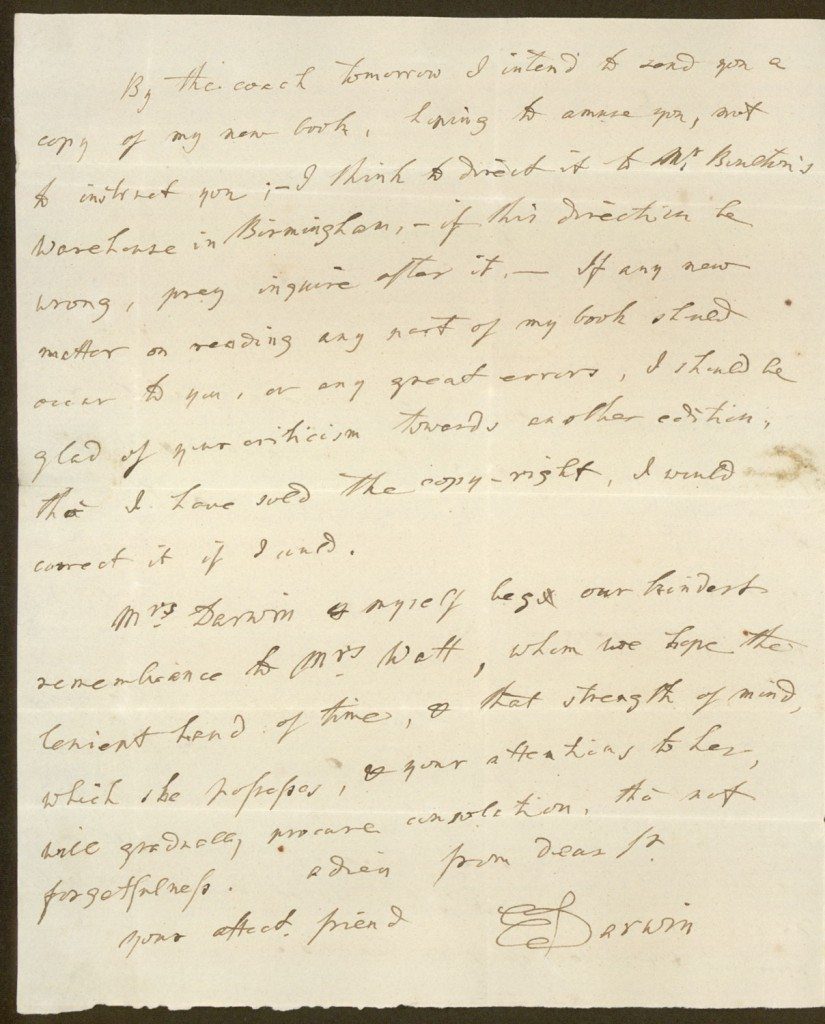 By the coach tomorrow I intend to send you a
copy of my new book, hoping to amuse you, not
to instruct you ;– I think to direct it to Mr. Boulton's
Warehouse in Birmingham, – if this direction be
wrong, pray inquire after it. — If any new
matter on reading any part of my book should
occur to you, or any great errors, I should be
glad of your criticism towards another edition,
tho I have sold the copy-right, I would
correct it if I could.
Mrs. Darwin & myself beg our kindest
remembrance to Mrs. Watt, whom we hope the
lenient hand of time, & that strength of mind,
which she possesses, & your attentions to her,
will gradually procure consolation, tho not
forgetfulness. adieu from dear Sr.
your affect. friend E Darwin